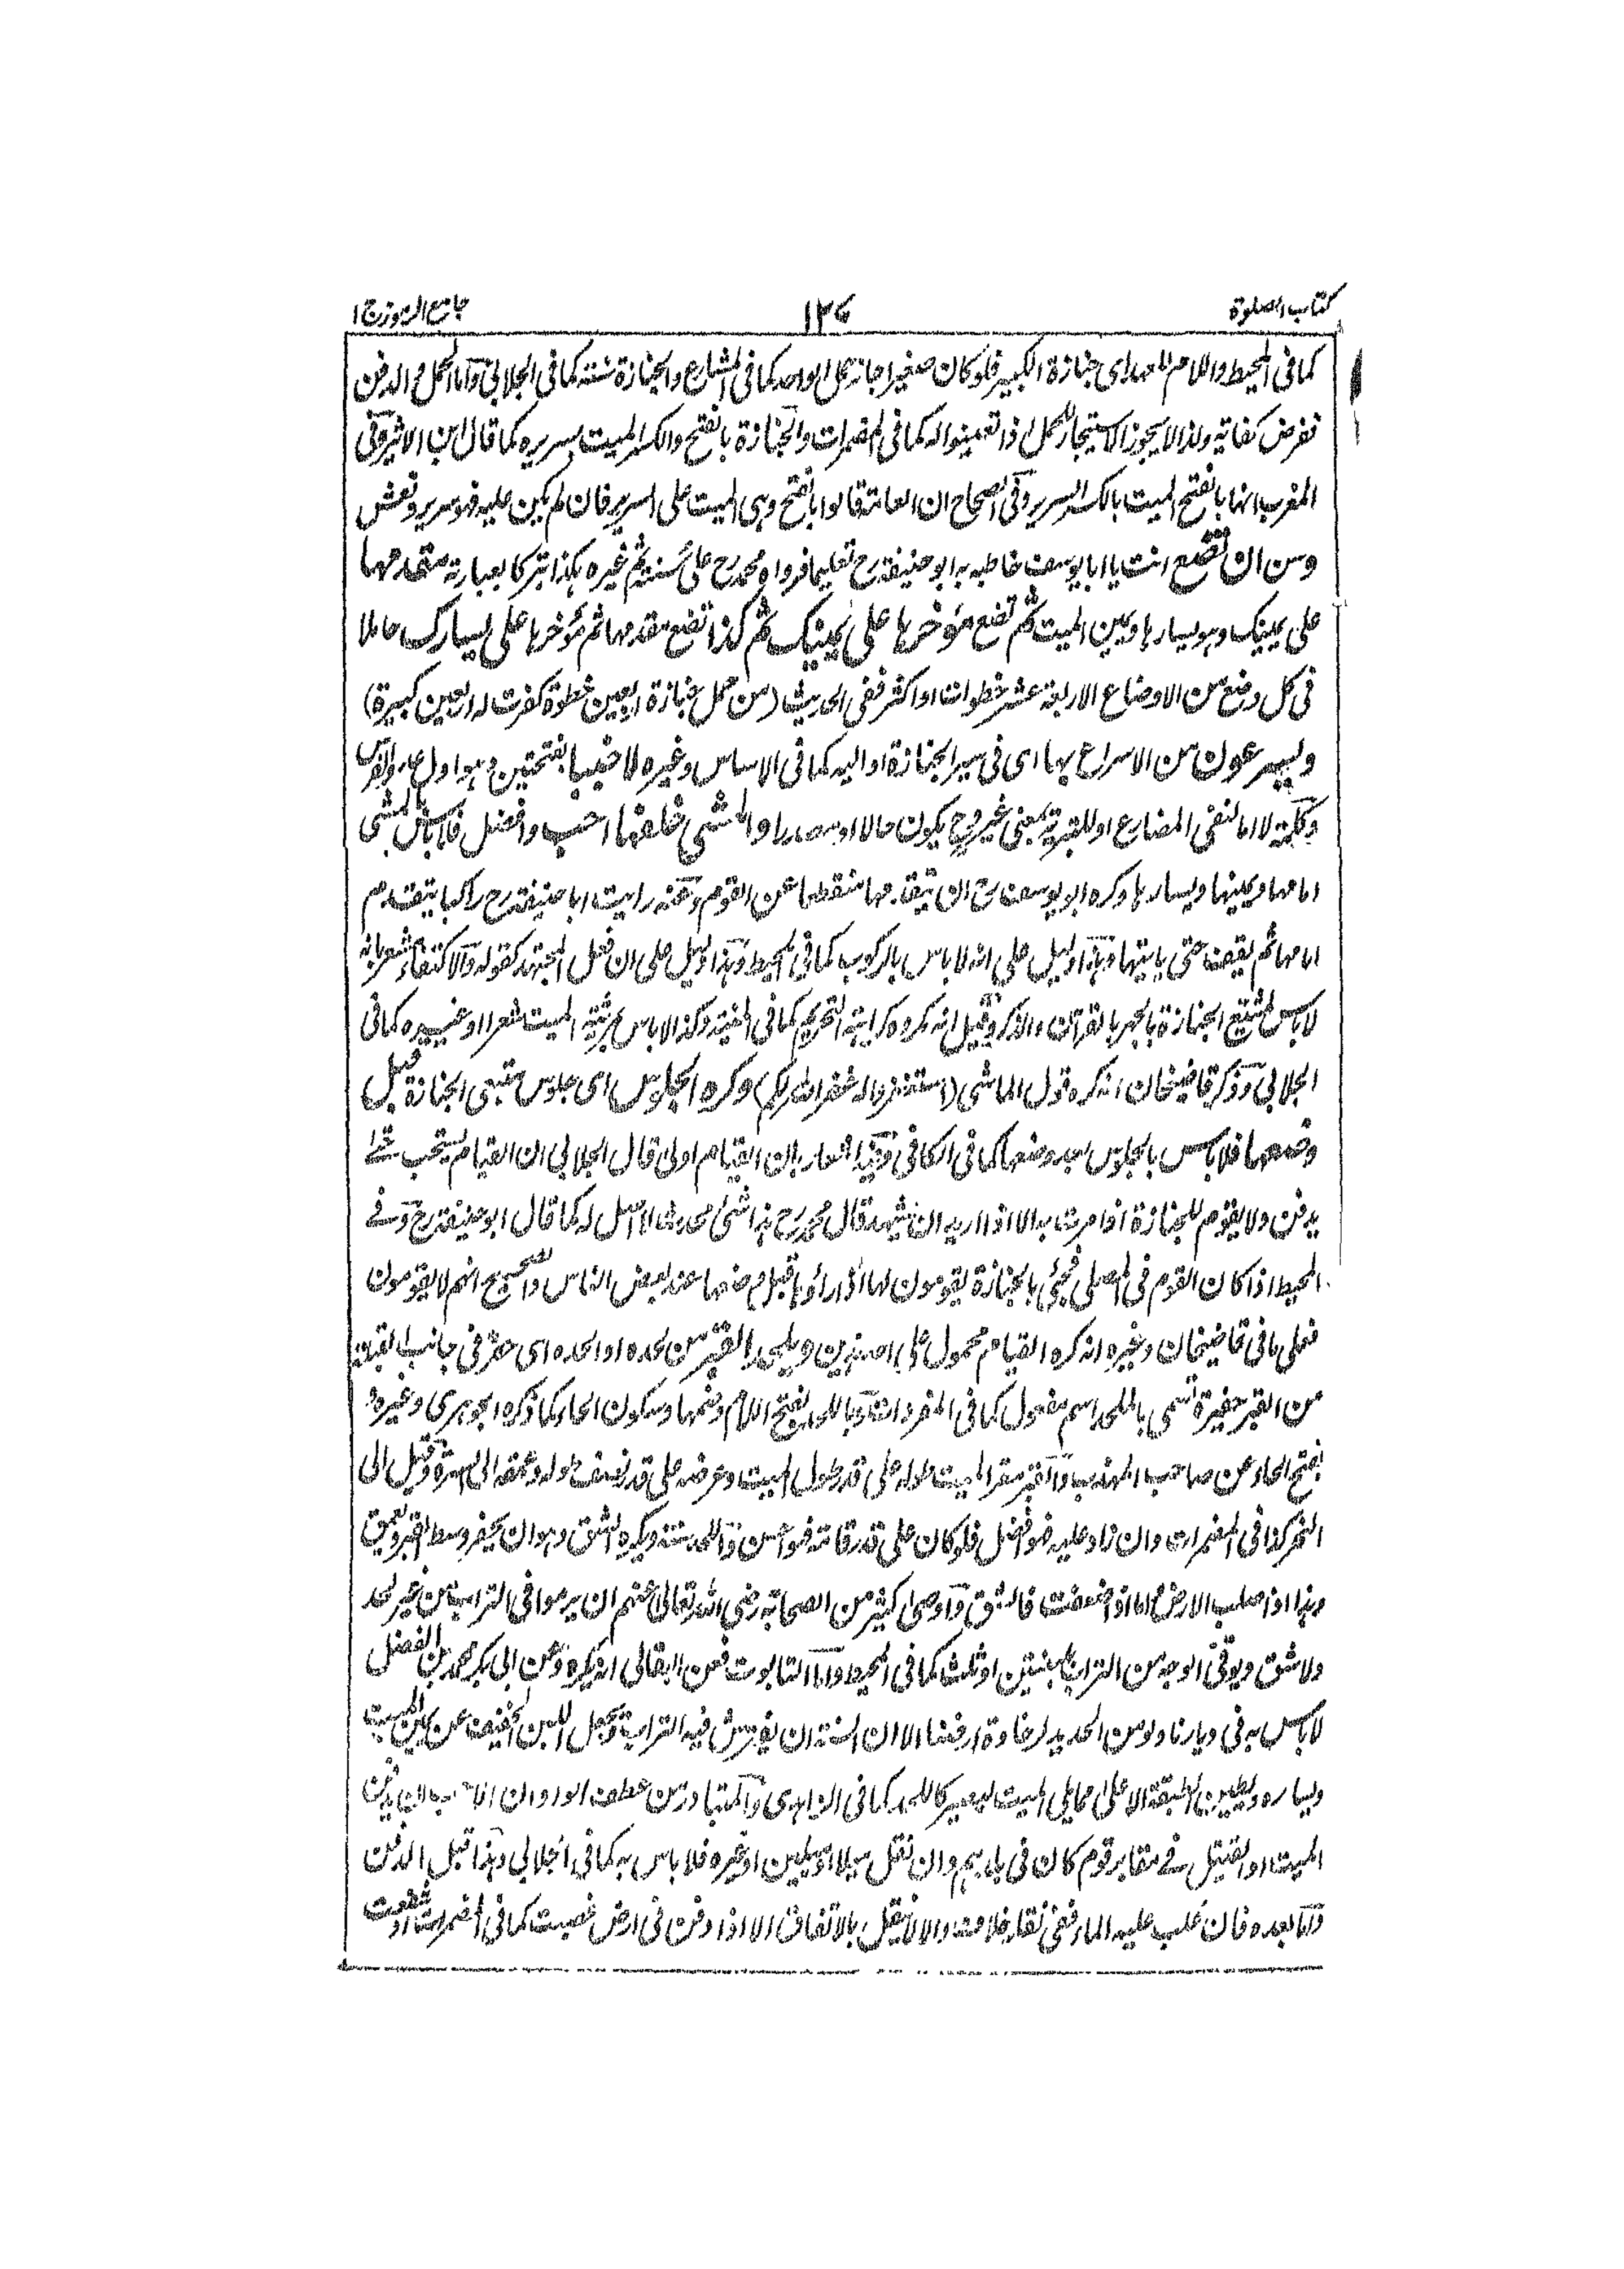 كتاب الصلوة
١٢٧
جامع الرموز ج ١
كما فى المحيط واللام للعهد اى جنازة الكبير فلو كان صغيرا جاز حمل الواحد كما فى المشارع والجنازة سنته كما فى الجلابى وآما الحمل والدفن
ففرض كفاية ولذا لا يجوز الاستيجار للحمل اذا تعينوا له كما فى المضمرات والجنازة بالفتح والكسر الميت بسريره كما قال ابن الاثير وفى
المغرب انها بالفتح الميت بالكسر السرير وفى الصحاح ان العامة قالوا بالفتح وهى الميت على السرير فان لم يكن عليه فهو سرير ونعش
وسن ان تضع انت يا ابا يوسف خاطبه به ابو حنيفة رح تعليما فرواه محمد رح على سننه ثم غيره هكذا تبركا بعبارته مقدمها
على يمينك وهو يسارها ويمين الميت ثم تضع مؤخرها على يمينك ثم كذا تضع مقدمها ثم مؤخرها على يسارك حاملا
فى كل وضع من الاوضاع الاربعة عشر خطوات او اكثر ففى الحديث (من حمل جنازة اربعين خطوة كفرت له اربعين كبيرة)
ويسرعون من الاسراع بها اى فى سير الجنازة او اليه كما فى الاساس وغيره لا خببا بفتحتين وهو اول عدو الفرس
وكلمة لا اما لنفى المضارع او للقرية بمعنى غير وح يكون حالا او مصدرا والمشى خلفها احب وافضل فلا باس بالمشى
امامها ويمينها ويسارها وكره ابو يوسف رح ان يتقدمها منقطعا عن القوم وعنه رايت ابا حنيفة رح راكبا يتقدم
امامها ثم يقف حتى ياتيها وهذا دليل على انه لا باس بالركوب كما فى المحيط وهذا دليل على ان فعل المجتهد كقوله والاكتفاء مشعر بانه
لا باس لمشيع الجنازة بالجهر بالقرآن والذكر وقيل انه مكروه كراهة التحريم كما فى المنية وكذا لا باس بمرثية الميت شعرا او غيره كما فى
الجلابى وذكر قاضيخان انه كره قول الماشى (استغفروا له غفر الله لكم) وكره الجلوس اى جلوس متبعى الجنازة قبل
وضعها فلا باس بالجلوس بعد وضعها كما فى الكافى وفيه اشعار بان القيام اولى قال الجلابى ان القيام يستحب حتى
يدفن ولا يقوم للجنازة اذا مرت به الا اذا اريد ان يشهد قال محمد رح هذا شئ محدث لا اصل له كما قال ابو حنيفة رح وفى
المحيط اذا كان القوم فى المصلى فجئ بالجنازة يقومون لها اذا راوها قبل وضعها عند بعض الناس والصحيح انهم لا يقومون
فعلى ما فى قاضيخان وغيره انه كره القيام محمول على احد هذين ويلحد القبر من لحده او الحده اى حفر فى جانب القبلة
من القبر حفيرة تسمى بالملحد اسم مفعول كما فى المفردات وباللحد بفتح اللام وضمها وسكون الحاء كما ذكره الجوهرى وغيره و
بفتح الحاء عن صاحب المهذب والقبر مقر الميت طوله على قدر طول الميت وعرضه على قدر نصف طوله وعمقه الى السرة وقيل الى
النحر كذا فى المضمرات وان زاد عليه فهو افضل فلو كان على قدر قامة فهو احسن واللحد سنة ويكره الشق وهو ان يحفر وسط القبر ويعمق
وهذا اذا صلب الارض اما اذا ضعفت فالشق واوصى كثير من الصحابة رضى الله تعالى عنهم ان يرموا فى التراب من غير لحد
ولا شق ويوقى الوجه من التراب بلبنتين او ثلث كما فى المحيط واما التابوت فعن البقالى انه يكره وعن ابى بكر محمد بن الفضل
لا باس به فى ديارنا ولو من الحديد لرخاوة ارضنا الا ان السنة ان يفترش فيه التراب ويجعل اللبن الخفيف عن يمين الميت
ويساره ويطين الطبقة الاعلى مما يلى الميت ليصير كاللحد كما فى الزاهدى والمتبادر من عطف الواو ان يدفن
الميت او القتيل فى مقابر قوم كان فى بلدهم وان نقل ميلا او ميلين او غيره فلا باس به كما فى الجلابى وهذا قبل الدفن
واما بعده فان غلب عليه الماء ففى نقله خلاف والا لا ينقل بالاتفاق الا اذا دفن فى ارض غصبت كما فى المضمرات او شفعت